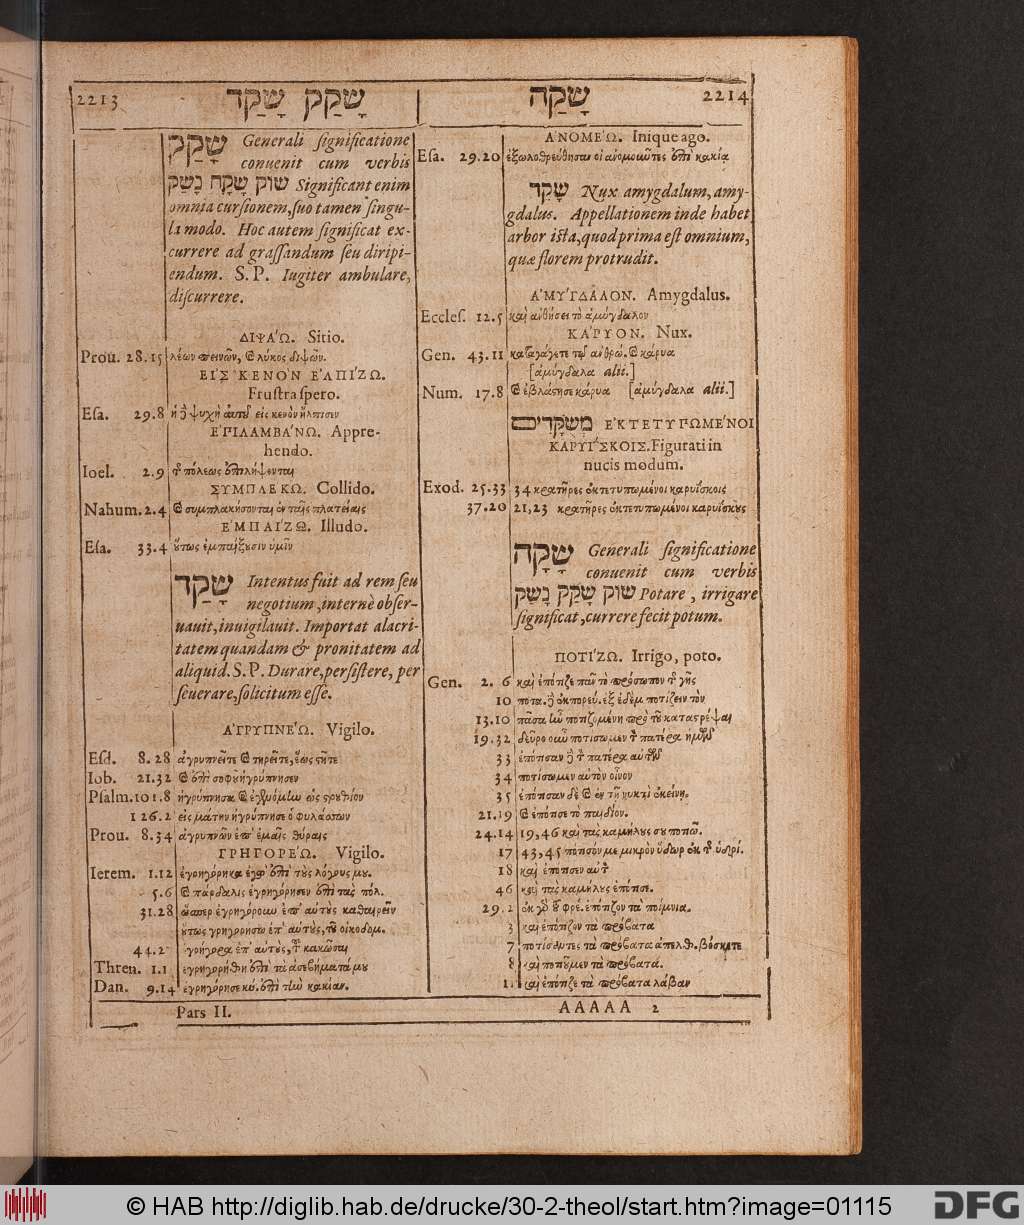 2213 שָׁקַק שָׁקַד
שָׁקַק Generali significatione
conuenit cum verbis
שוק שָׁקָה נָשַׁק Significant enim
omnia cursionem, suo tamen singu-
li modo. Hoc autem significat ex-
currere ad grassandum seu diripi-
endum. S. P. Iugiter ambulare,
discurrere.
ΔΙΨΆΩ. Sitio.
Prou. 28.15 λέων πεινῶν, καὶ λύκος διψῶν.
ΕἸΣ ΚΕΝῸΝ ἘΛΠΊΖΩ.
Frustra spero.
Esa. 29.8 ἡ δὲ ψυχὴ αὐτοῦ εἰς κενὸν ἤλπισεν
ἘΠΙΛΑΜΒΆΝΩ. Appre-
hendo.
Ioel. 2.9 τῆς πόλεως ἐπιλήψονται
ΣΥΜΠΛΕΚΩ. Collido.
Nahum. 2.4 καὶ συμπλακήσονται ἐν ταῖς πλατείαις
ἘΜΠΑΊΖΩ. Illudo.
Esa. 33.4 οὕτως ἐμπαίξουσιν ὑμῖν
שָׁקַד Intentus fuit ad rem seu
negotium, internè obser-
uauit, inuigilauit. Importat alacri-
tatem quandam & pronitatem ad
aliquid. S. P. Durare, persistere, per
seuerare, solicitum esse.
ἈΓΡΥΠΝΈΩ. Vigilo.
Esd. 8.28 ἀγρυπνεῖτε καὶ τηρεῖτε, ἕως στῆτε
Iob. 21.32 καὶ ἐπὶ σοφῷ ἠγρύπνησεν
Psalm. 101.8 ἠγρύπνησα καὶ ἐγενόμην ὡς στρουθίον
126.2 εἰς μάτην ἠγρύπνησε ὁ φυλάσσων
Prou. 8.34 ἀγρυπνῶν ἐπ' ἐμαῖς θύραις
ΓΡΗΓΟΡΈΩ. Vigilo.
Ierem. 1.12 ἐγρηγόρηκα ἐγὼ ἐπὶ τοὺς λόγους μου.
5.6 καὶ πάρδαλις ἐγρηγόρησεν ἐπὶ τὰς πόλ.
31.28 ὥσπερ ἐγρηγόρουν ἐπ' αὐτοὺς καθαιρεῖν
οὕτως γρηγορήσω ἐπ' αὐτοὺς, τοῦ οἰκοδομ.
44.27 ἐγρήγορα ἐπ' αὐτοὺς, τοῦ κακῶσαι
Thren. 1.1 ἐγρηγορήθη ἐπὶ τὰ ἀσεβήματά μου
Dan. 9.14 ἐγρηγόρησε κύ. ἐπὶ τὴν κακίαν.
Pars II.
שָׁקָה 2214
ἈΝΟΜΈΩ. Inique ago.
Esa. 29.20 ἐξωλοθρεύθησαν οἱ ἀνομοῦντες ἐπὶ κακίᾳ
שָׁקֵד Nux amygdalum, amy-
gdalus. Appellationem inde habet
arbor ista, quod prima est omnium,
quæ florem protrudit.
ἈΜΎΓΔΑΛΟΝ. Amygdalus.
Eccles. 12.5 καὶ ἀνθήσει τὸ ἀμύγδαλον
ΚΆΡΥΟΝ. Nux.
Gen. 43.11 καταγάγετε τῷ ἀνθρώ. καὶ κάρυα
[ἀμύγδαλα alii.]
Num. 17.8 καὶ ἐβλάστησε κάρυα [ἀμύγδαλα alii.]
מְשֻׁקָּדִים ἘΚΤΕΤΥΠΩΜΈΝΟΙ
ΚΑΡΥΊΣΚΟΙΣ. Figurati in
nucis modum.
Exod. 25.33 34 κρατῆρες ἐκτετυπωμένοι καρυΐσκοις
37.20 21, 23 κρατῆρες ἐκτετυπωμένοι καρυΐσκους
שָׁקָה Generali significatione
conuenit cum verbis
שוק שָׁקַק נָשַׁק Potare, irrigare
significat, currere fecit potum.
ΠΟΤΊΖΩ. Irrigo, poto.
Gen. 2. 6 καὶ ἐπότιζε πᾶν τὸ πρόσωπον τῆς γῆς
10 ποτα. δὲ ἐκπορεύ. ἐξ ἐδὲμ ποτίζειν τὸν
13.10 πᾶσα ἦν ποτιζομένη πρὸ τοῦ καταστρέψαι
19.32 δεῦρο οὖν ποτίσωμεν τὸν πατέρα ἡμῶν
33 ἐπότισαν δὲ τὸν πατέρα αὐτῶν
34 ποτίσωμεν αὐτὸν οἶνον
35 ἐπότισαν δὲ καὶ ἐν τῇ νυκτὶ ἐκείνῃ.
21.19 καὶ ἐπότισε τὸ παιδίον.
24.14 19, 46 καὶ τὰς καμήλους σου ποτιῶ.
17 43, 45 πότισόν με μικρὸν ὕδωρ ἐκ τῆς ὑδρί.
18 καὶ ἐπότισεν αὐτὸν
46 καὶ τὰς καμήλους ἐπότισε.
29.2 ἐκ γὰρ τοῦ φρέ. ἐπότιζον τὰ ποίμνια.
3 καὶ ἐπότιζον τὰ πρόβατα
7 ποτίσαντες τὰ πρόβατα ἀπελθ. βόσκετε
8 καὶ ποτιοῦμεν τὰ πρόβατα.
καὶ ἐπότιζε τὰ πρόβατα λάβαν
AAAAA 2
© HAB http://diglib.hab.de/drucke/30-2-theol/start.htm?image=01115
DFG